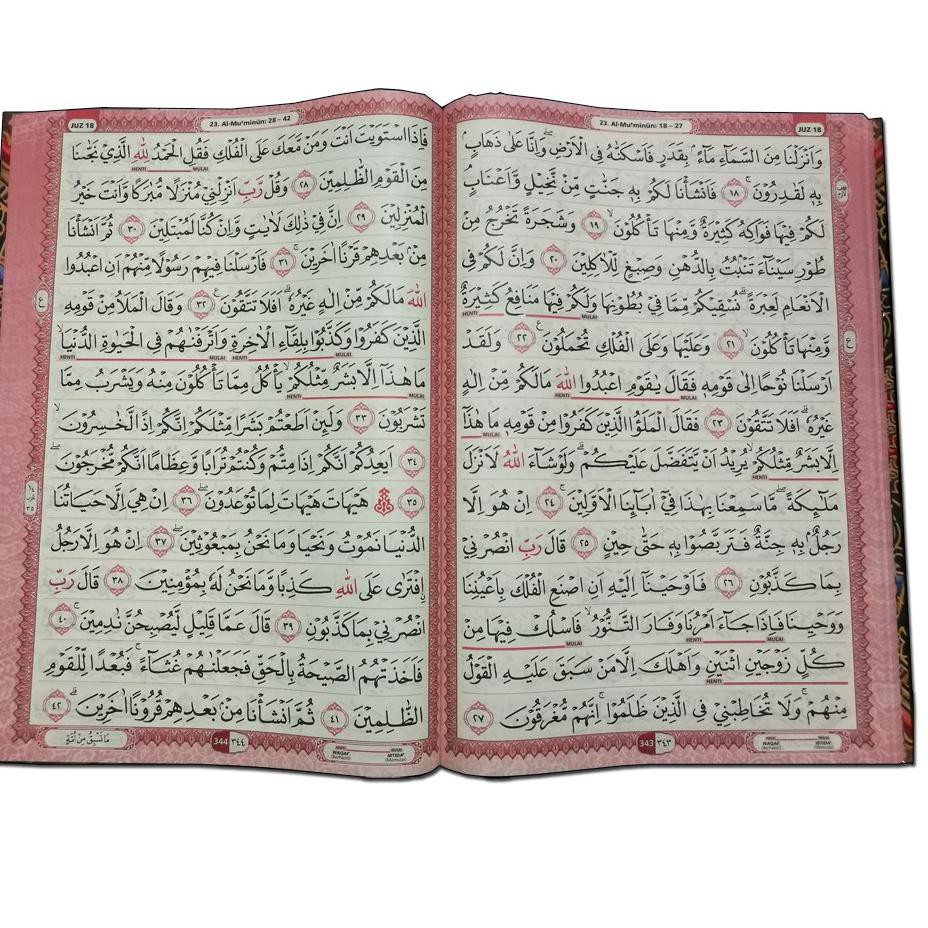 JUZ 18
23. Al-Mu'minūn: 18 – 27
وَاَنْزَلْنَا مِنَ السَّمَاۤءِ مَاۤءً ۢ بِقَدَرٍ فَاَسْكَنّٰهُ فِى الْاَرْضِۖ وَاِنَّا عَلٰى ذَهَابٍ
بِهٖ لَقٰدِرُوْنَ ۚ ١٨ فَاَنْشَأْنَا لَكُمْ بِهٖ جَنّٰتٍ مِّنْ نَّخِيْلٍ وَّاَعْنَابٍ
لَكُمْ فِيْهَا فَوَاكِهُ كَثِيْرَةٌ وَّمِنْهَا تَأْكُلُوْنَ ۙ ١٩ وَشَجَرَةً تَخْرُجُ مِنْ
طُوْرِ سَيْنَاۤءَ تَنْۢبُتُ بِالدُّهْنِ وَصِبْغٍ لِّلْاٰكِلِيْنَ ٢٠ وَاِنَّ لَكُمْ فِى
الْاَنْعَامِ لَعِبْرَةًۗ نُسْقِيْكُمْ مِّمَّا فِيْ بُطُوْنِهَا وَلَكُمْ فِيْهَا مَنَافِعُ كَثِيْرَةٌ
HENTI MULAI
وَّمِنْهَا تَأْكُلُوْنَ ۙ ٢١ وَعَلَيْهَا وَعَلَى الْفُلْكِ تُحْمَلُوْنَ ࣖ ٢٢ وَلَقَدْ
اَرْسَلْنَا نُوْحًا اِلٰى قَوْمِهٖ فَقَالَ يٰقَوْمِ اعْبُدُوا اللّٰهَ مَا لَكُمْ مِّنْ اِلٰهٍ
HENTI MULAI
غَيْرُهٗۗ اَفَلَا تَتَّقُوْنَ ٢٣ فَقَالَ الْمَلَؤُا الَّذِيْنَ كَفَرُوْا مِنْ قَوْمِهٖ مَا هٰذَآ
MULAI
اِلَّا بَشَرٌ مِّثْلُكُمْۙ يُرِيْدُ اَنْ يَّتَفَضَّلَ عَلَيْكُمْۗ وَلَوْ شَاۤءَ اللّٰهُ لَاَنْزَلَ
HENTI
مَلٰۤىِٕكَةً ۖ مَّا سَمِعْنَا بِهٰذَا فِيْٓ اٰبَاۤىِٕنَا الْاَوَّلِيْنَ ۚ ٢٤ اِنْ هُوَ اِلَّا
رَجُلٌۢ بِهٖ جِنَّةٌ فَتَرَبَّصُوْا بِهٖ حَتّٰى حِيْنٍ ٢٥ قَالَ رَبِّ انْصُرْنِيْ
بِمَا كَذَّبُوْنِ ٢٦ فَاَوْحَيْنَآ اِلَيْهِ اَنِ اصْنَعِ الْفُلْكَ بِاَعْيُنِنَا
وَوَحْيِنَا فَاِذَا جَاۤءَ اَمْرُنَا وَفَارَ التَّنُّوْرُۙ فَاسْلُكْ فِيْهَا مِنْ
HENTI MULAI
كُلٍّ زَوْجَيْنِ اثْنَيْنِ وَاَهْلَكَ اِلَّا مَنْ سَبَقَ عَلَيْهِ الْقَوْلُ
HENTI
مِنْهُمْۚ وَلَا تُخَاطِبْنِيْ فِى الَّذِيْنَ ظَلَمُوْاۚ اِنَّهُمْ مُّغْرَقُوْنَ ٢٧
343 ٣٤٣
WAQAF (Berhenti)
IBTIDA' (Memulai)
JUZ 18
23. Al-Mu'minūn: 28 – 42
فَاِذَا اسْتَوَيْتَ اَنْتَ وَمَنْ مَّعَكَ عَلَى الْفُلْكِ فَقُلِ الْحَمْدُ لِلّٰهِ الَّذِيْ نَجّٰىنَا
HENTI MULAI
مِنَ الْقَوْمِ الظّٰلِمِيْنَ ٢٨ وَقُلْ رَّبِّ اَنْزِلْنِيْ مُنْزَلًا مُّبٰرَكًا وَّاَنْتَ خَيْرُ
الْمُنْزِلِيْنَ ٢٩ اِنَّ فِيْ ذٰلِكَ لَاٰيٰتٍ وَّاِنْ كُنَّا لَمُبْتَلِيْنَ ٣٠ ثُمَّ اَنْشَأْنَا
مِنْۢ بَعْدِهِمْ قَرْنًا اٰخَرِيْنَ ۚ ٣١ فَاَرْسَلْنَا فِيْهِمْ رَسُوْلًا مِّنْهُمْ اَنِ اعْبُدُوا
اللّٰهَ مَا لَكُمْ مِّنْ اِلٰهٍ غَيْرُهٗۗ اَفَلَا تَتَّقُوْنَ ࣖ ٣٢ وَقَالَ الْمَلَاُ مِنْ قَوْمِهِ
الَّذِيْنَ كَفَرُوْا وَكَذَّبُوْا بِلِقَاۤءِ الْاٰخِرَةِ وَاَتْرَفْنٰهُمْ فِى الْحَيٰوةِ الدُّنْيَاۙ
MULAI HENTI MULAI HENTI
مَا هٰذَآ اِلَّا بَشَرٌ مِّثْلُكُمْۙ يَأْكُلُ مِمَّا تَأْكُلُوْنَ مِنْهُ وَيَشْرَبُ مِمَّا
HENTI MULAI
تَشْرَبُوْنَ ۙ ٣٣ وَلَىِٕنْ اَطَعْتُمْ بَشَرًا مِّثْلَكُمْ اِنَّكُمْ اِذًا لَّخٰسِرُوْنَ ۙ
٣٤ اَيَعِدُكُمْ اَنَّكُمْ اِذَا مِتُّمْ وَكُنْتُمْ تُرَابًا وَّعِظَامًا اَنَّكُمْ مُّخْرَجُوْنَ ۖ
٣٥ هَيْهَاتَ هَيْهَاتَ لِمَا تُوْعَدُوْنَ ۖ ٣٦ اِنْ هِيَ اِلَّا حَيَاتُنَا
الدُّنْيَا نَمُوْتُ وَنَحْيَا وَمَا نَحْنُ بِمَبْعُوْثِيْنَ ۖ ٣٧ اِنْ هُوَ اِلَّا رَجُلُ
ِۨافْتَرٰى عَلَى اللّٰهِ كَذِبًا وَّمَا نَحْنُ لَهٗ بِمُؤْمِنِيْنَ ٣٨ قَالَ رَبِّ
انْصُرْنِيْ بِمَا كَذَّبُوْنِ ٣٩ قَالَ عَمَّا قَلِيْلٍ لَّيُصْبِحُنَّ نٰدِمِيْنَ ۚ ٤٠
فَاَخَذَتْهُمُ الصَّيْحَةُ بِالْحَقِّ فَجَعَلْنٰهُمْ غُثَاۤءًۚ فَبُعْدًا لِّلْقَوْمِ
الظّٰلِمِيْنَ ٤١ ثُمَّ اَنْشَأْنَا مِنْۢ بَعْدِهِمْ قُرُوْنًا اٰخَرِيْنَ ۗ ٤٢
مَا تَسْبِقُ مِنْ اُمَّةٍ
344 ٣٤٤
WAQAF (Berhenti)
IBTIDA' (Memulai)